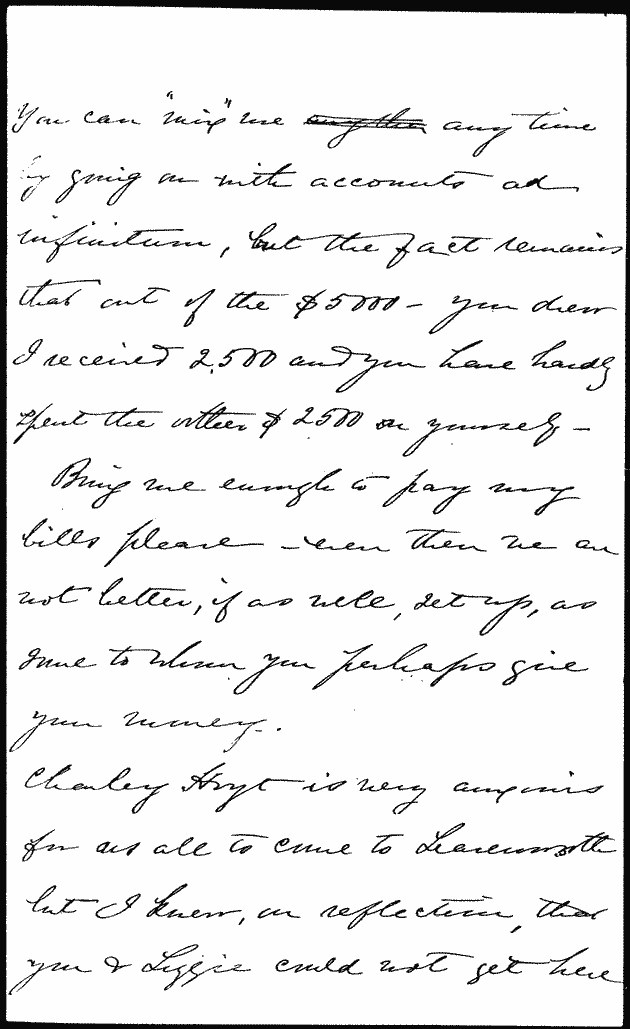 You can "mix" me any time
by going on with accounts ad
infinitum, but the fact remains
that out of the $5000 - you drew
I received 2,500 and you have hardly
spent the other $2500 on yourself -
Bring me enough to pay my
bills please - even then we are
not better, if as well, set up, as
some to whom you perhaps give
your money.
Charley Hoyt is very anxious
for us all to come to Leavenworth
but I knew, on reflection, that
you & Lizzie could not get here